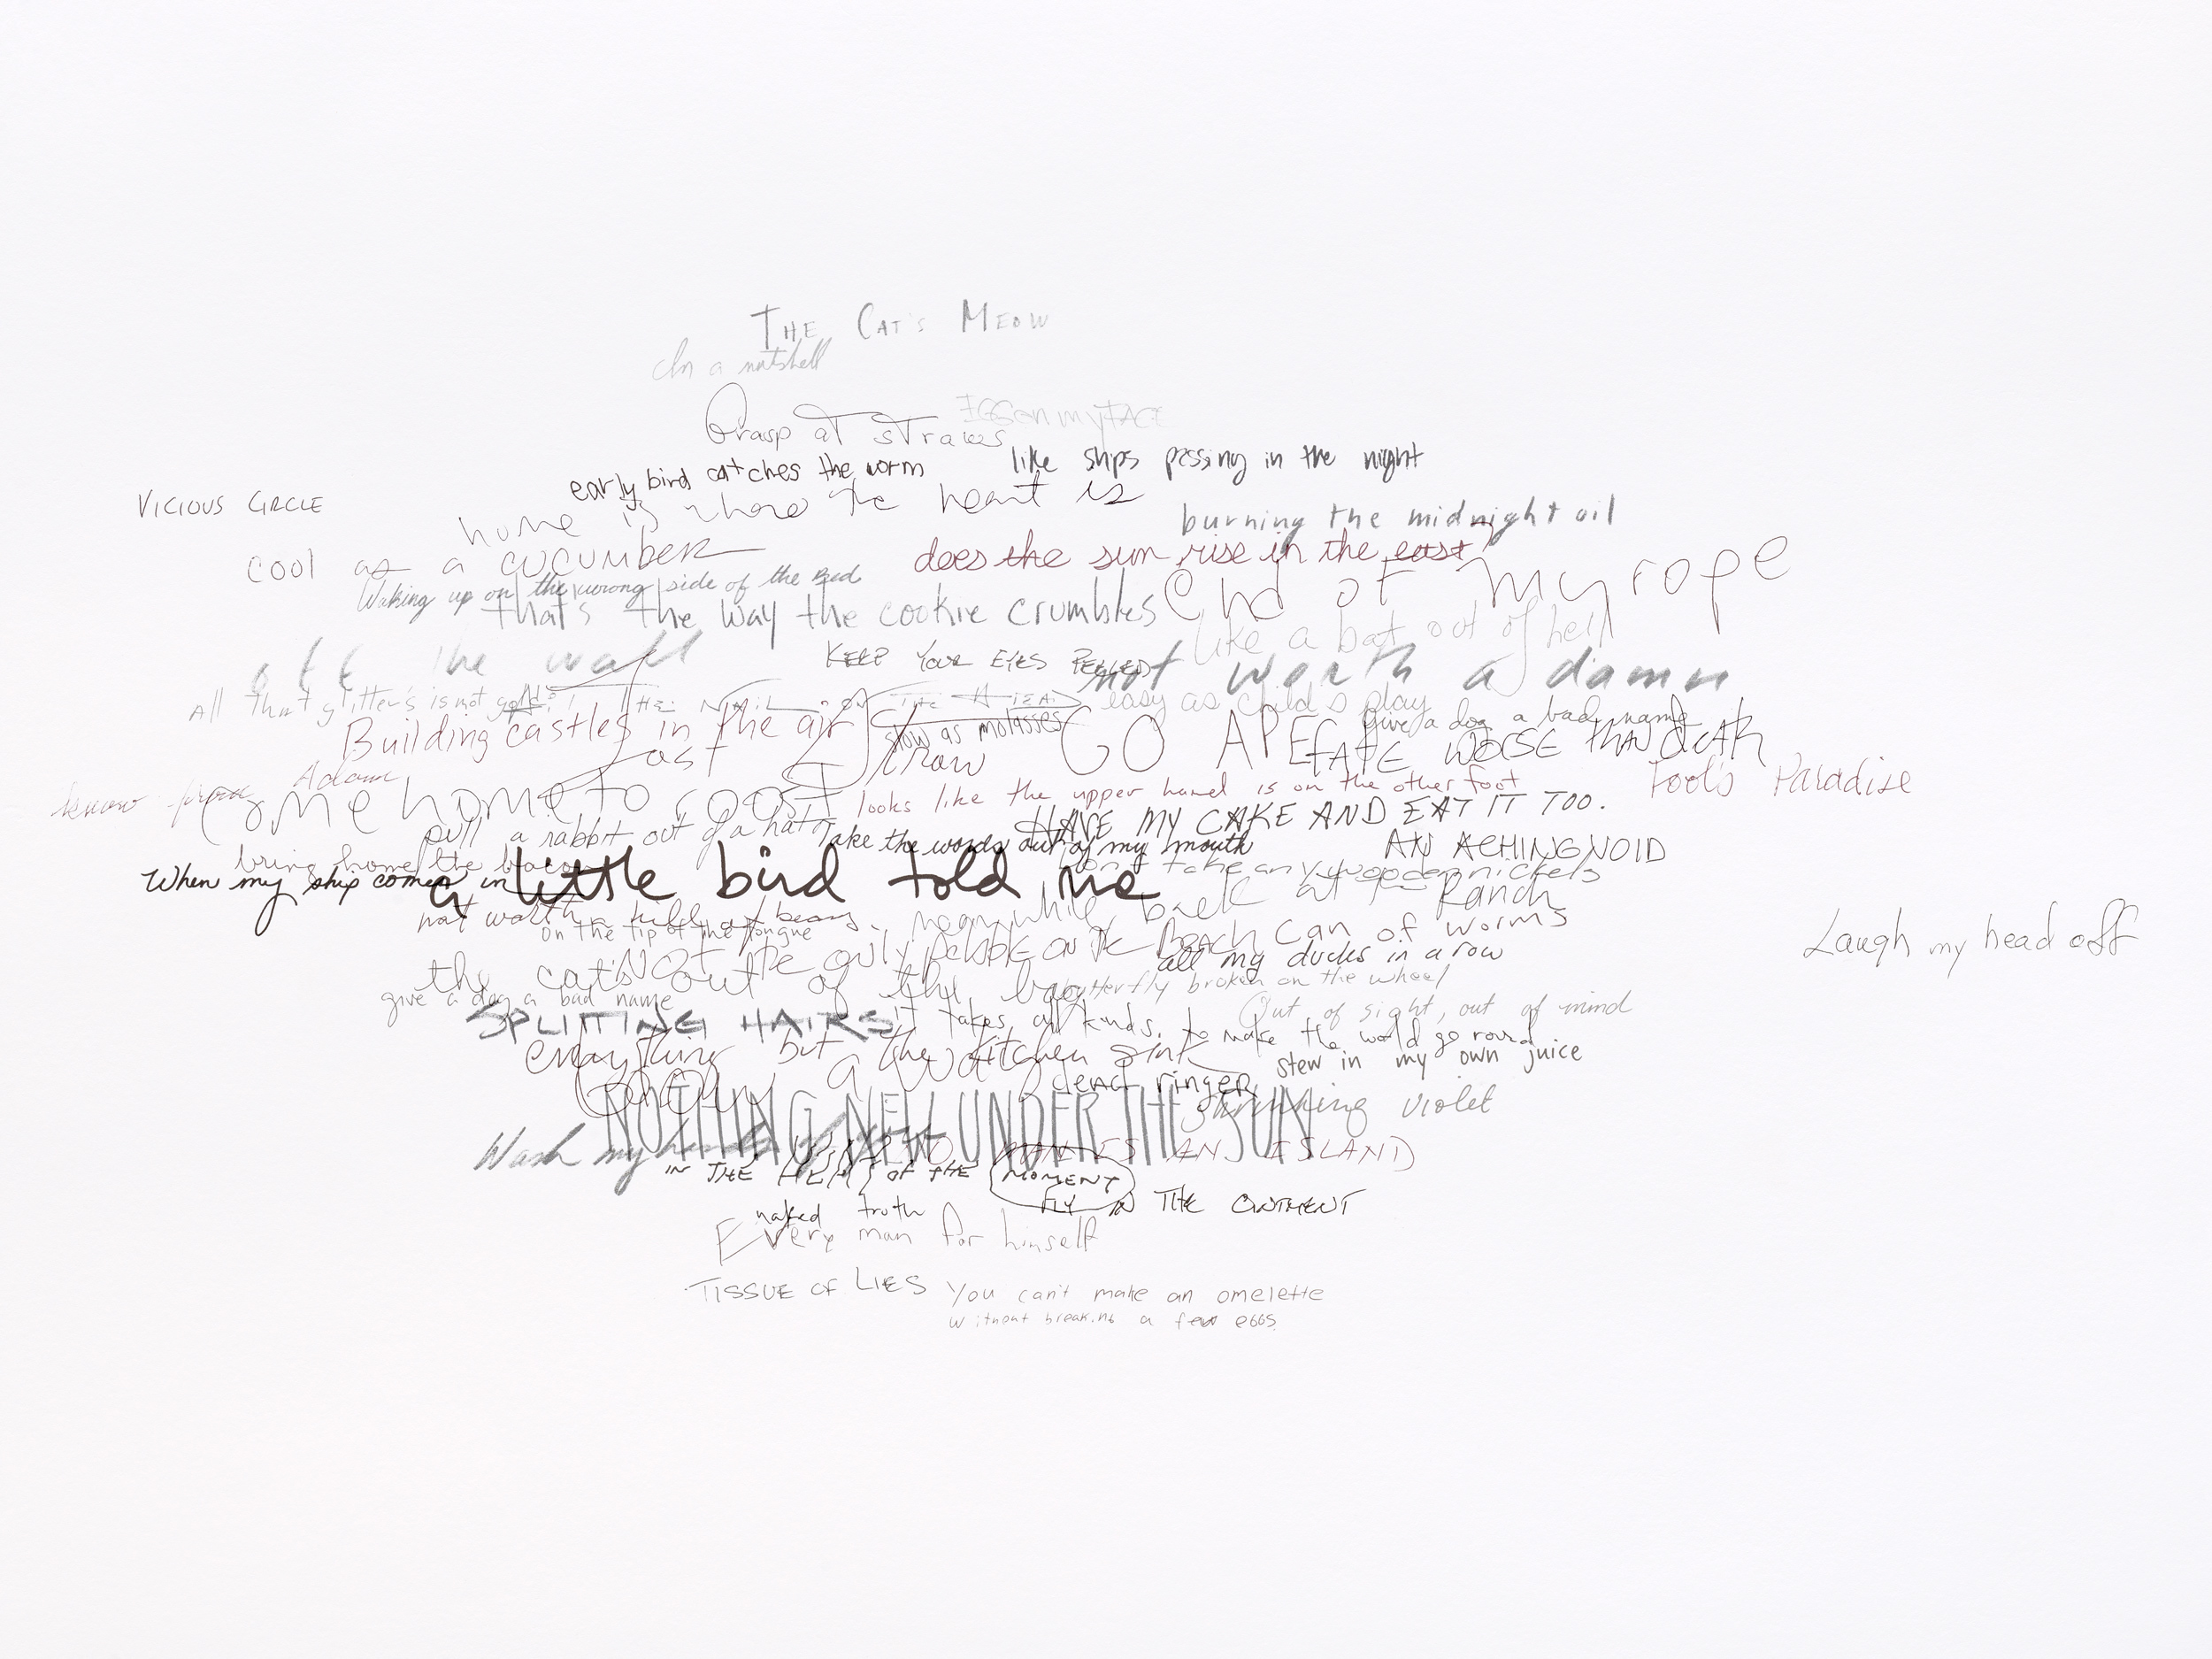 THE CAT'S MEOW
In a nutshell
EGG on my FACE
Grasp at straws
like ships passing in the night
early bird catches the worm
home is where the heart is
VICIOUS CIRCLE
burning the midnight oil
cool as a cucumber
does the sun rise in the east
End of my rope
Waking up on the wrong side of the Bed
that's the way the cookie crumbles
like a bat out of hell
off the wall
KEEP YOUR EYES PEELED
not worth a damn
All that glitters is not gold
HIT THE NAIL ON THE HEAD
easy as child's play
Building castles in the air
slow as molasses
GO APE
give a dog a bad name
FATE WORSE THAN DEATH
last straw
know from Adam
Fool's Paradise
come home to roost
looks like the upper hand is on the other foot
HAVE MY CAKE AND EAT IT TOO.
pull a rabbit out of a hat
Take the words out of my mouth
AN ACHING VOID
bring home the bacon
don't take any wooden nickels
When my ship comes in
a little bird told me
meanwhile, back at the Ranch
not worth a hill of beans
on the tip of the tongue
Can of worms
Laugh my head off
NOT the only pebble on the Beach
all my ducks in a row
the cat's out of the bag
butterfly broken on the wheel
give a dog a bad name
Out of sight, out of mind
SPLITTING HAIRS
it takes all kinds, to make the world go round
everything but the kitchen sink
stew in my own juice
dead ringer
NOTHING NEW UNDER THE SUN
shrinking violet
Wash my hands of
NO MAN IS AN ISLAND
IN THE HEAT OF THE MOMENT
FLY IN THE OINTMENT
naked truth
Every man for himself
TISSUE OF LIES
You can't make an omelette
without breaking a few eggs